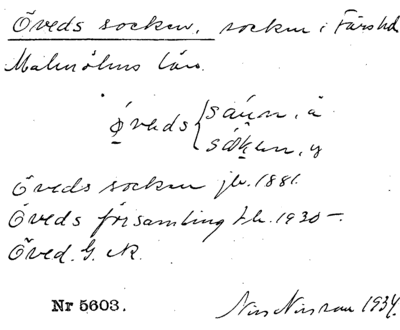 Öveds socken, socken i Färs hd
Malmöhus län.
óveds { sáŋn, ä
sókен, y
Öveds socken jb. 1881.
Öveds församling tb. 1930 –.
Öved. G. K.
Nr 5603. Nils Nilsson 1934.